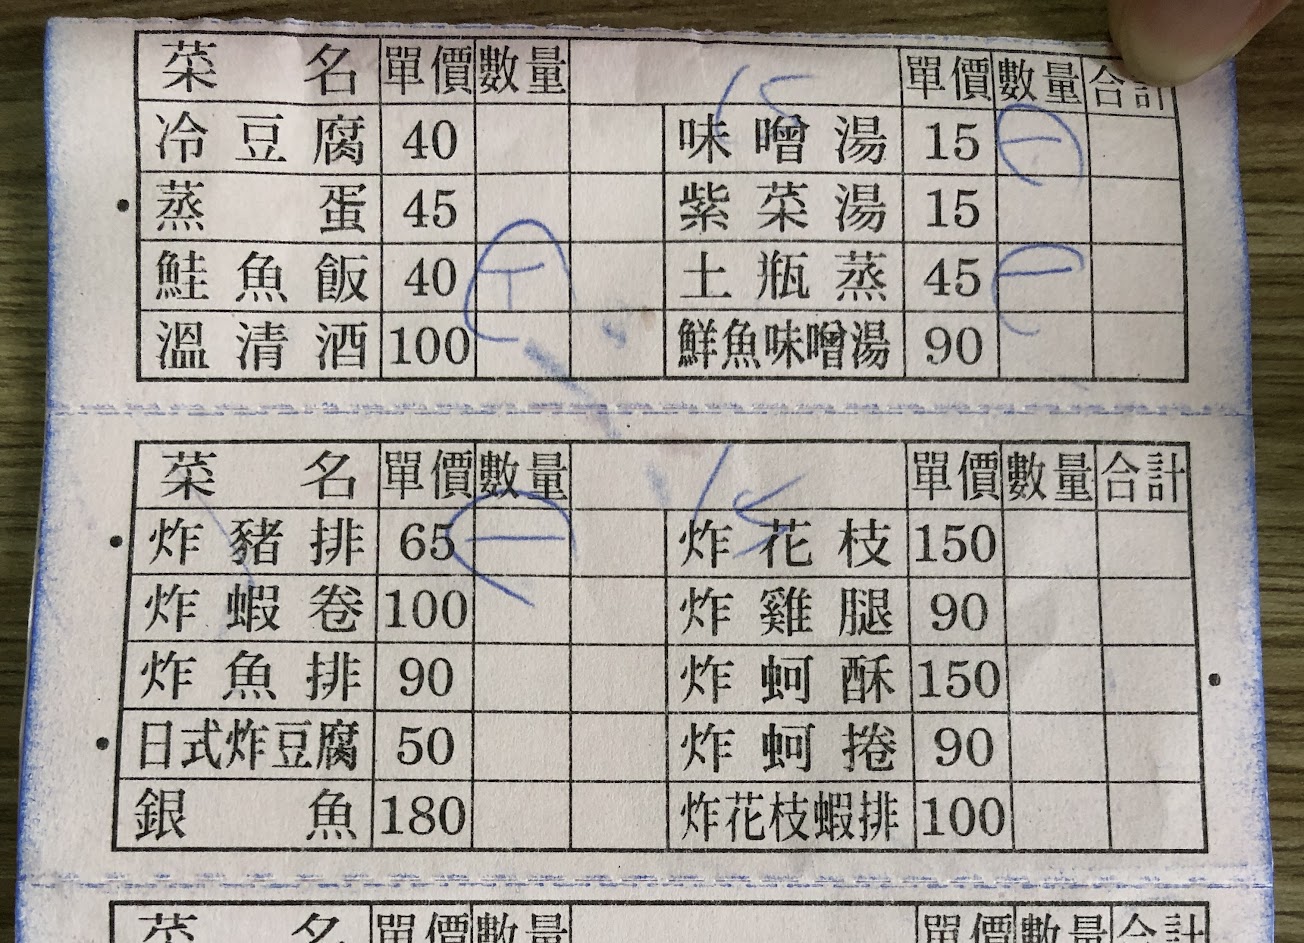 菜名 單價 數量 單價 數量 合計
15
冷豆腐 40 味噌湯 15 一
蒸蛋 45 紫菜湯 15
鮭魚飯 40 土瓶蒸 45 一
溫清酒 100 鮮魚味噌湯 90
菜名 單價 數量 單價 數量 合計
15
炸豬排 65 一 炸花枝 150
炸蝦卷 100 炸雞腿 90
炸魚排 90 炸蚵酥 150
日式炸豆腐 50 炸蚵捲 90
銀魚 180 炸花枝蝦排 100
菜名 單價 數量 單價 數量 合計